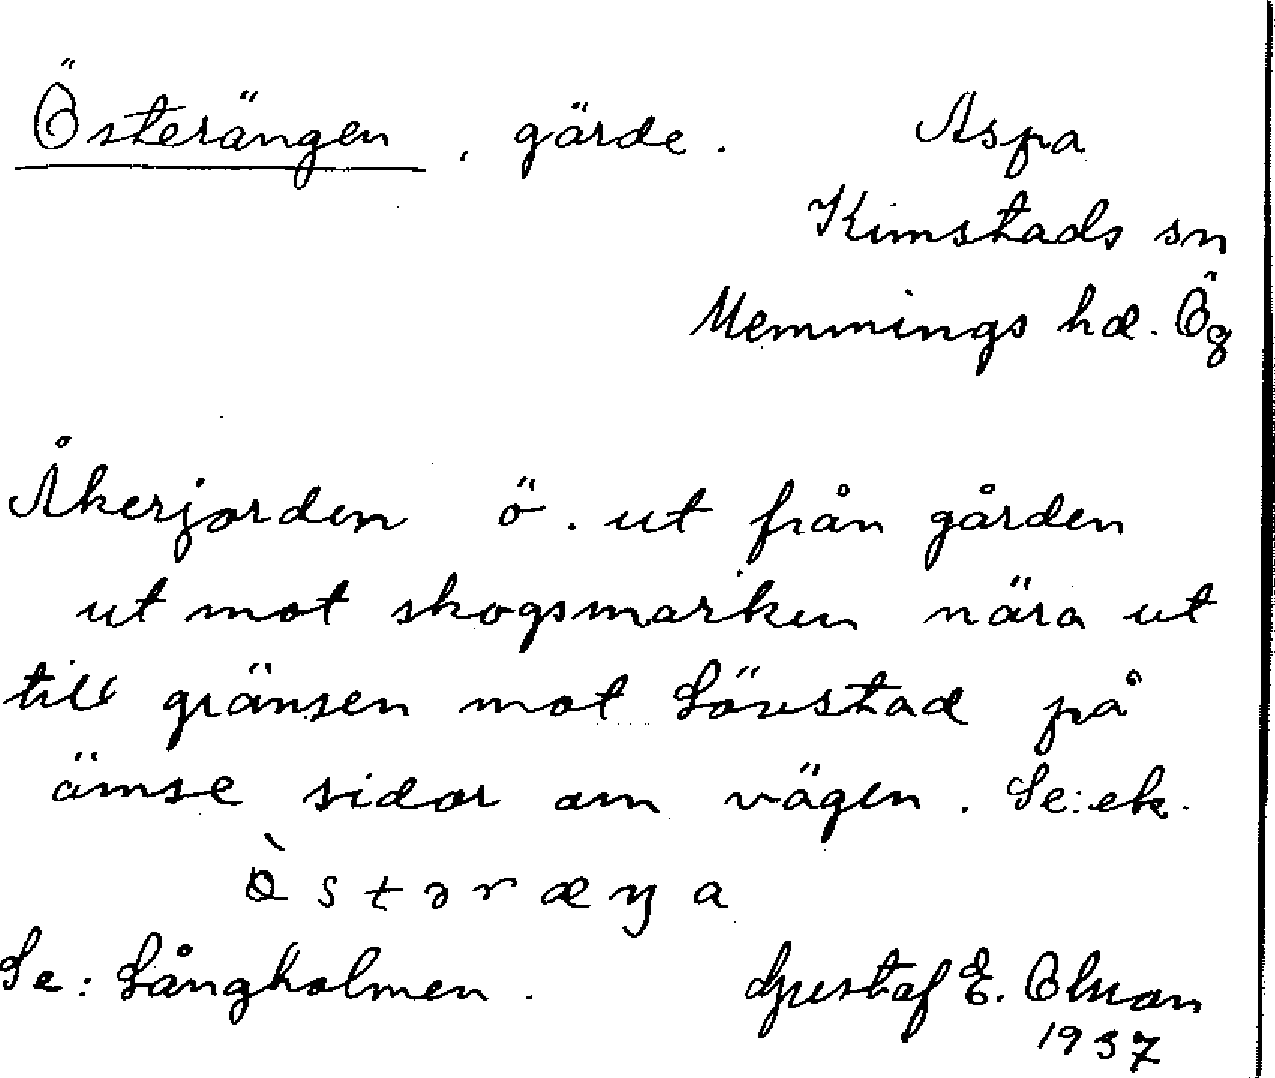 Österängen, gärde. Aspa
Kimstads sn
Memmings hd. Ög
Åkerjorden ö. ut från gården
ut mot skogsmarken nära ut
till gränsen mot Lövstad på
ömse sidor om vägen. Se: ek.
Se: Långholmen. Gustaf E. Olson
1937